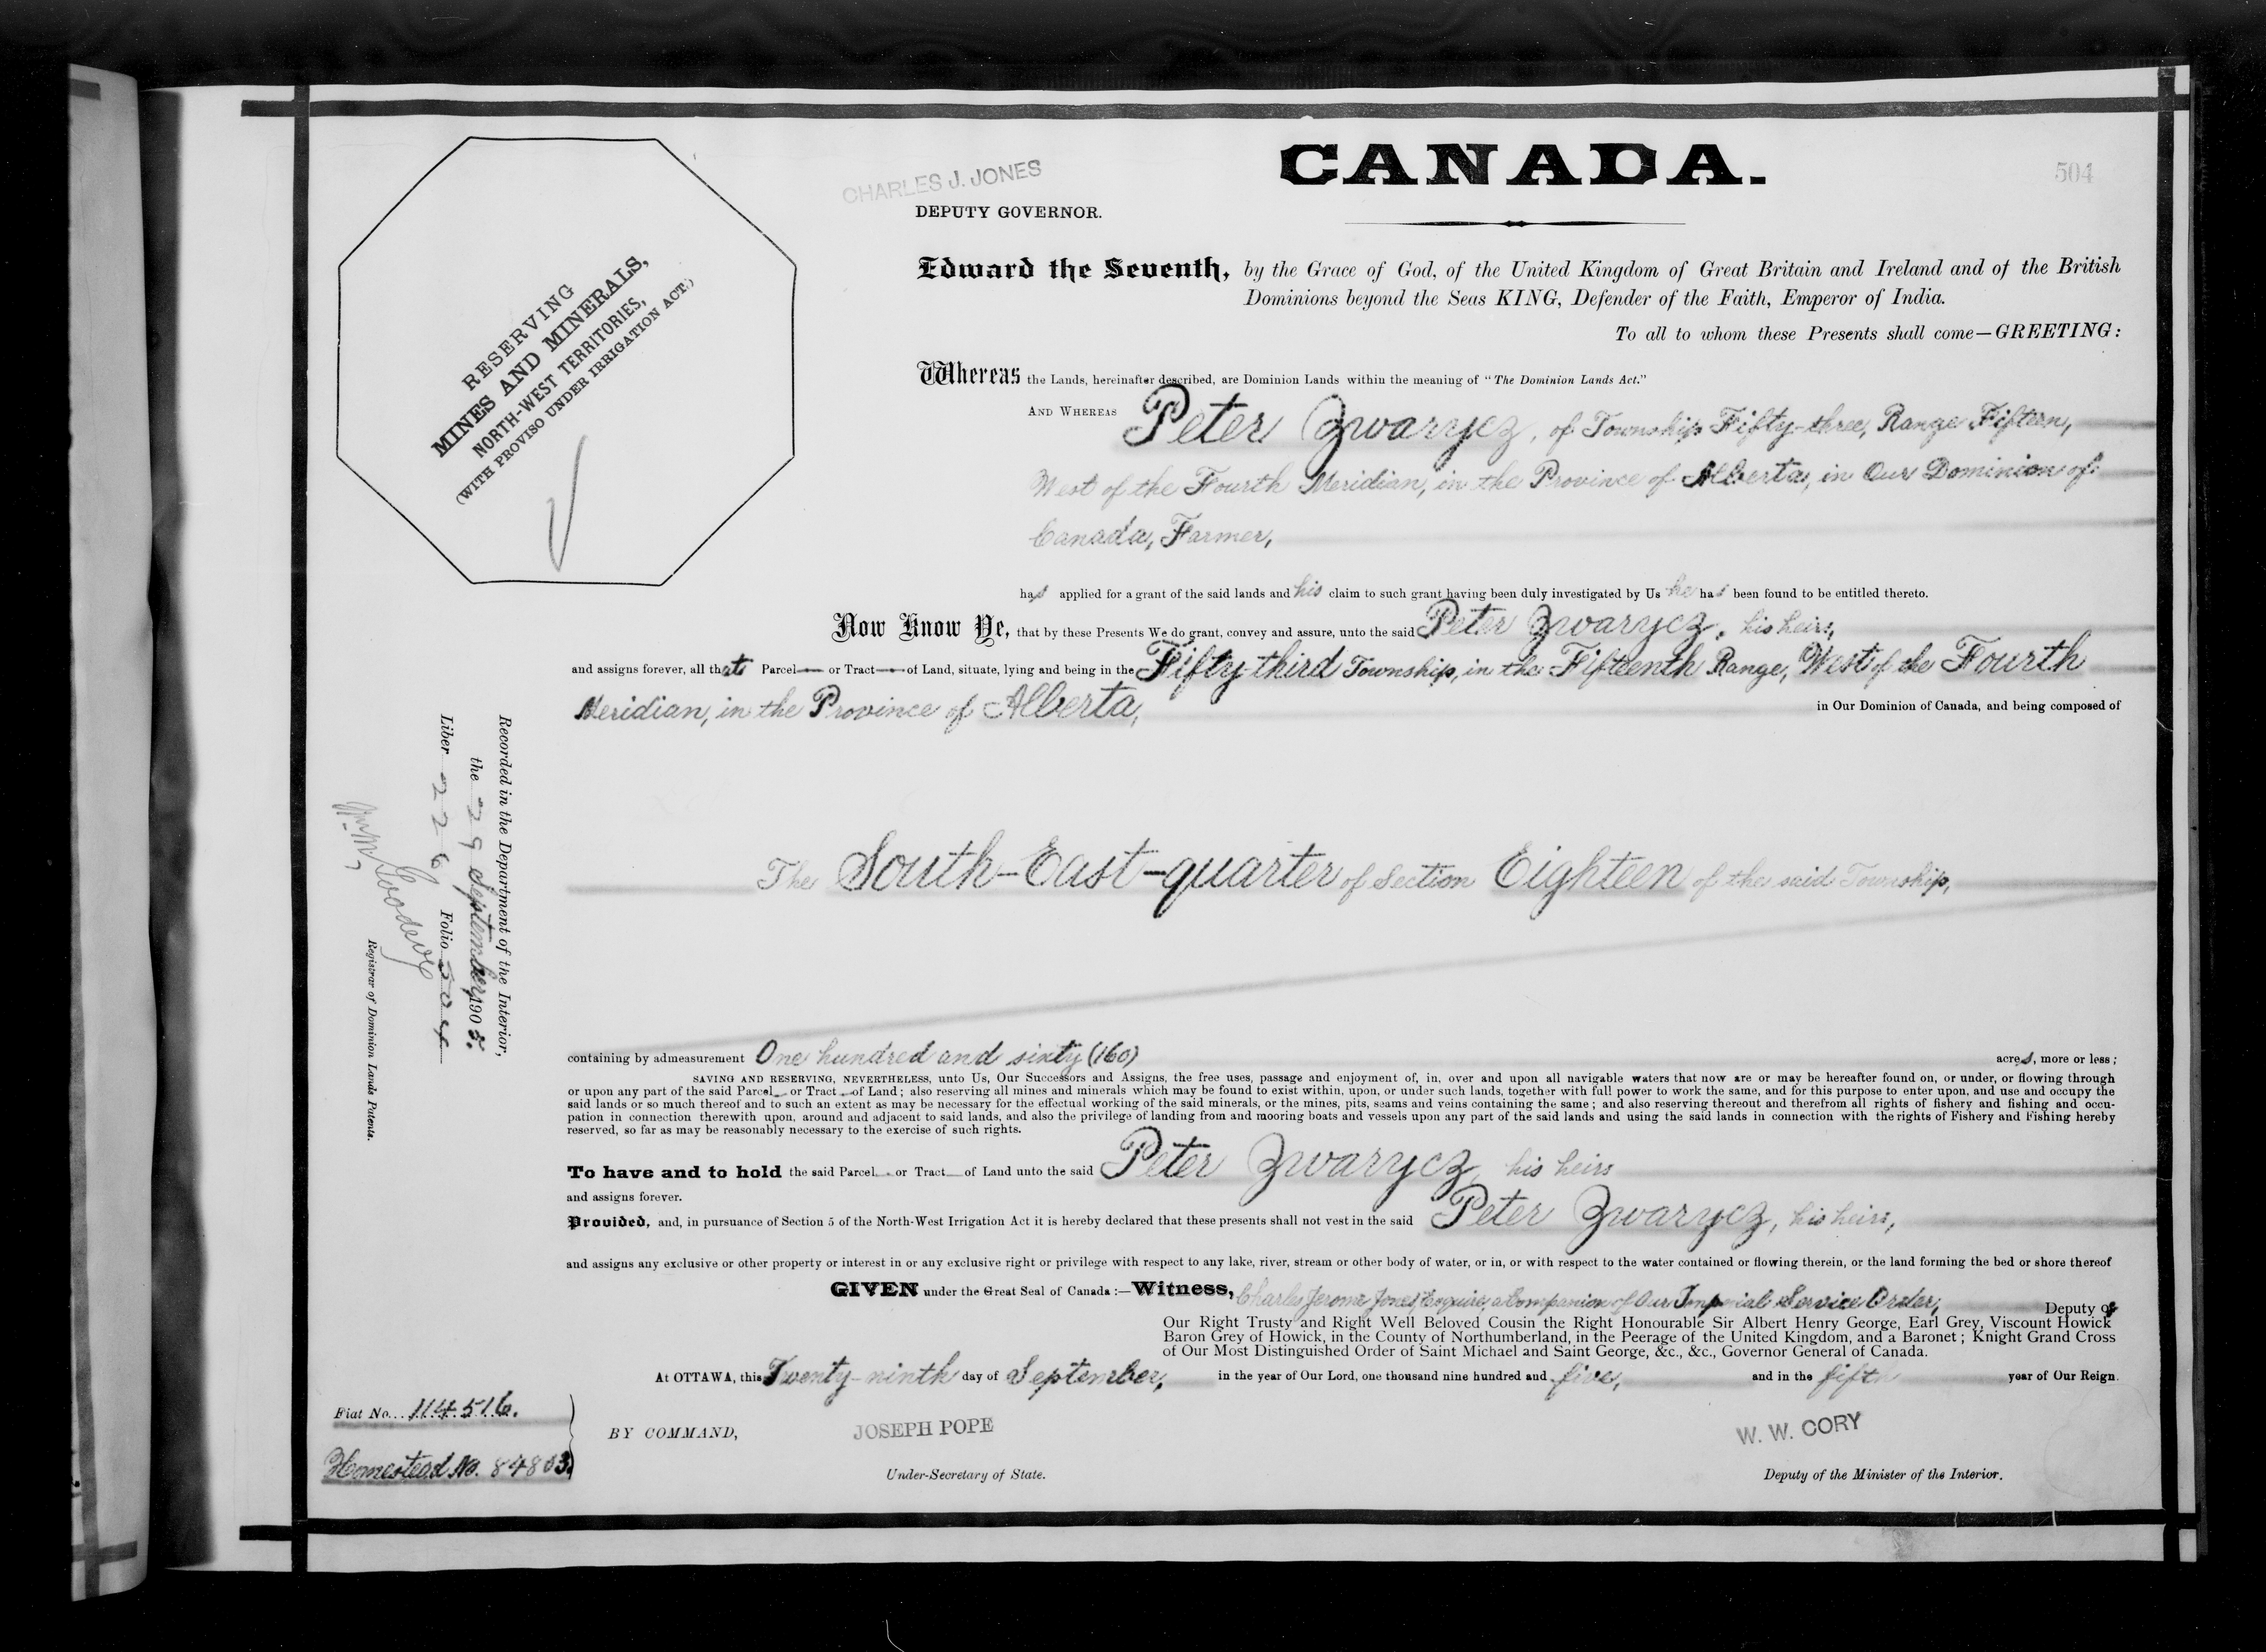 CANADA.
504
CHARLES J. JONES
DEPUTY GOVERNOR.
RESERVING
MINES AND MINERALS,
NORTH-WEST TERRITORIES,
(WITH PROVISO UNDER IRRIGATION ACT.)
Edward the Seventh, by the Grace of God, of the United Kingdom of Great Britain and Ireland and of the British
Dominions beyond the Seas KING, Defender of the Faith, Emperor of India.
To all to whom these Presents shall come—GREETING:
Whereas the Lands, hereinafter described, are Dominion Lands within the meaning of "The Dominion Lands Act."
AND WHEREAS Peter Zwarycz, of Township Fifty-three, Range Fifteen,
West of the Fourth Meridian, in the Province of Alberta, in Our Dominion of
Canada, Farmer,
has applied for a grant of the said lands and his claim to such grant having been duly investigated by Us he has been found to be entitled thereto.
Now Know Ye, that by these Presents We do grant, convey and assure, unto the said Peter Zwarycz, his heirs,
and assigns forever, all that Parcel— or Tract— of Land, situate, lying and being in the Fifty-third Township, in the Fifteenth Range, West of the Fourth
Meridian, in the Province of Alberta, in Our Dominion of Canada, and being composed of
The South-East-quarter of Section Eighteen of the said Township,
containing by admeasurement One hundred and sixty (160) acres, more or less;
SAVING AND RESERVING, NEVERTHELESS, unto Us, Our Successors and Assigns, the free uses, passage and enjoyment of, in, over and upon all navigable waters that now are or may be hereafter found on, or under, or flowing through
or upon any part of the said Parcel— or Tract—of Land; also reserving all mines and minerals which may be found to exist within, upon, or under such lands, together with full power to work the same, and for this purpose to enter upon, and use and occupy the
said lands or so much thereof and to such an extent as may be necessary for the effectual working of the said minerals, or the mines, pits, seams and veins containing the same; and also reserving thereout and therefrom all rights of fishery and fishing and occu-
pation in connection therewith upon, around and adjacent to said lands, and also the privilege of landing from and mooring boats and vessels upon any part of the said lands and using the said lands in connection with the rights of Fishery and Fishing hereby
reserved, so far as may be reasonably necessary to the exercise of such rights.
To have and to hold the said Parcel— or Tract— of Land unto the said Peter Zwarycz, his heirs
and assigns forever.
Provided, and, in pursuance of Section 5 of the North-West Irrigation Act it is hereby declared that these presents shall not vest in the said Peter Zwarycz, his heirs,
and assigns any exclusive or other property or interest in or any exclusive right or privilege with respect to any lake, river, stream or other body of water, or in, or with respect to the water contained or flowing therein, or the land forming the bed or shore thereof
GIVEN under the Great Seal of Canada :—Witness, Charles Jerome Jones, Esquire, a Companion of Our Imperial Service Order, Deputy of
Our Right Trusty and Right Well Beloved Cousin the Right Honourable Sir Albert Henry George, Earl Grey, Viscount Howick
Baron Grey of Howick, in the County of Northumberland, in the Peerage of the United Kingdom, and a Baronet; Knight Grand Cross
of Our Most Distinguished Order of Saint Michael and Saint George, &c., &c., Governor General of Canada.
At OTTAWA, this Twenty-ninth day of September, in the year of Our Lord, one thousand nine hundred and five, and in the fifth year of Our Reign.
BY COMMAND,
JOSEPH POPE
Under-Secretary of State.
W. W. CORY
Deputy of the Minister of the Interior.
Fiat No... 114516.
Homestead No. 84803
Recorded in the Department of the Interior,
the 29 September 1905.
Liber 226 Folio 504
Wm M. Goodeve
Registrar of Dominion Lands Patents.